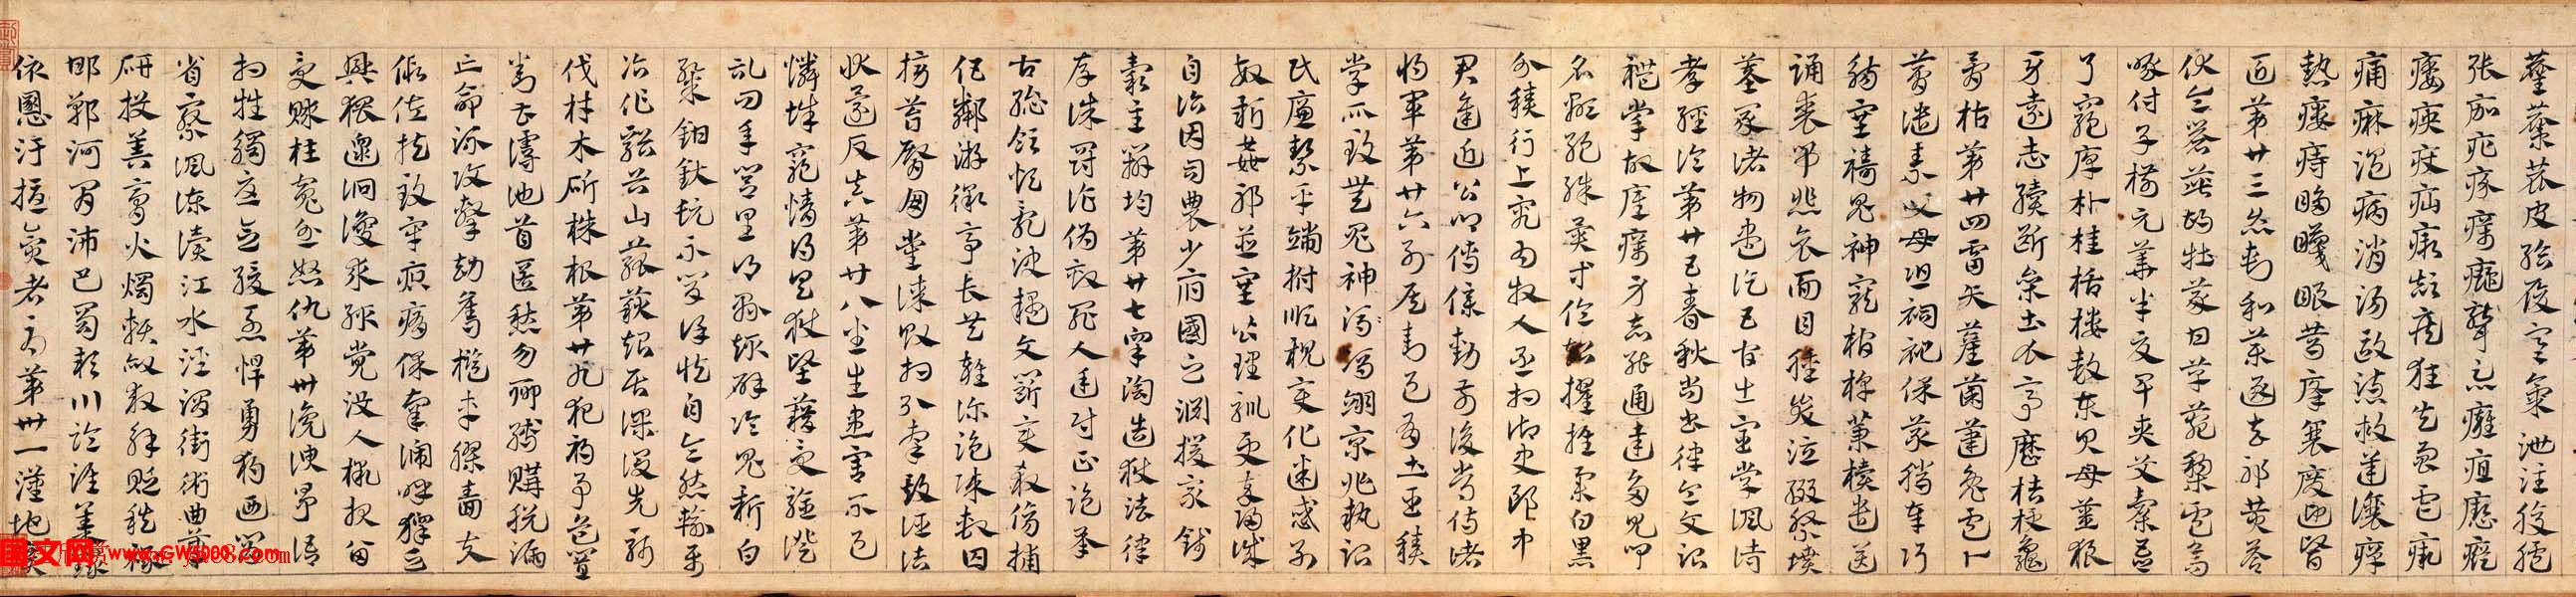 藜藿皮給履寒氣泄注腹臚
張痂疕疥癘癡聾忘癰疽瘛瘲
痿痺痮疝瘕顛疾狂失響瘧瘚
痛瘼溫病消渴歐逆欬懣讓癉
熱瘻痔眵䁾眼篤癃衰廢迎醫
匠第廿三灸刺和藥逐去邪黃芩
伏令礜茈胡牡蒙甘草菀藜蘆烏
喙付子椒元華半夏皂莢艾橐吾
弓窮厚朴桂栝樓款東貝母薑狼
牙遠志續斷參土瓜亭歷桔梗龜
骨枯第廿四雷矢雚菌藎兔盧卜
問譴祟父母恐祠祀社稷叢臘奉
謁禓塞禱鬼神寵棺槨槥櫝遣送
踊喪弔悲哀面目腫哭泣祭醊墳
墓冢諸物盡訖五官出宦學諷詩
孝經論第廿五春秋尚書律令文治
禮掌故砥厲身智能通達多見聞
名顯絕殊異等倫抽擢推舉白黑
分積行上究為牧人丞相御史郎中
君進近公卿傅僕勳前後常侍諸
將軍第廿六列侯封邑有土臣積
學所致無鬼神馮翊京兆執治
民廉潔平端拊順親變化迷惑別
故新姦邪並塞皆理馴更卒歸誠
自詣因司農少府國之淵援眾錢
穀主辨均第廿七皋陶造獄法律
存誅罰詐偽劾罪人廷尉正監承
古總領煩亂決疑文鬥變殺傷捕
伍鄰游徼亭長共雜診盜賊繫囚
榜笞臀朋黨謀敗相引牽欺誣詰
狀還反真第廿八坐生患害不足
憐辭窮情得具獄堅藉受驗證
記問年閭里鄉縣趣辟論鬼新白
粲鉗釱髡不肯謹慎自令然輸屬
詔作谿谷山菰篍起居課後先斬
伐材木斫株根第廿九犯禍事危置
對曹謾訑首匿愁勿聊縛購脫漏
亡命流攻擊劫奪檻車膠嗇夫
假佐扶致牢疻痏保辜啼呼獋乏
興猥逮詗讂求輒覺沒入檄報留
受賕枉冤忿怒仇第卅讒諛爭語
相抵觸憂念緩急悍勇獨迺肯
省察諷諫讀江水涇渭街術曲筆
研投筭膏火燭賴赦救解貶秩祿
邯鄲河間沛巴蜀潁川臨淮集課錄
依溷汙擾貪者辱第卅一漢地廣
图文网 www.GW5000.com